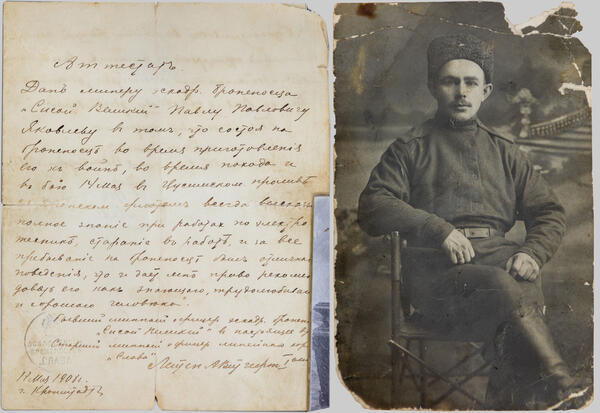 Аттестатъ
Данъ минеру эскадр. броненосца
"Сисой Великій" Павлу Павловичу
Яковлеву в томъ, что состоя на
броненосцѣ во время приготовленія
его къ войнѣ, во время похода и
въ бою 14 Мая въ Цусимскомъ проливѣ
с японскимъ флотомъ всегда выказывалъ
полное знаніе при работахъ по электро
техникѣ, стараніе въ работѣ, и за все
пребываніе на броненосцѣ былъ отличнаго
поведенія, что и даетъ мнѣ право рекомен
довать его какъ знающаго, трудолюбиваго
и хорошаго человѣка.
Бывшій минный офицеръ эскадр. броненосца
"Сисой Великій" в настоящее вр
Старшій минный офицеръ линейнаго кор
"Слава"
Лейтен
1908 г.
г. Кронштадтъ